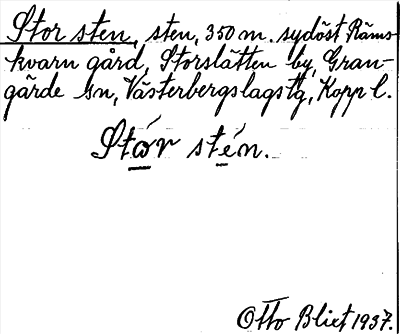 Stor sten, sten, 350 m. sydöst Räms-
kvarn gård, Storslätten by, Gran-
gärde sn, Västerbergslags tg, Kopp l.
Stó̲r sté̲n.
Otto Blixt 1937.